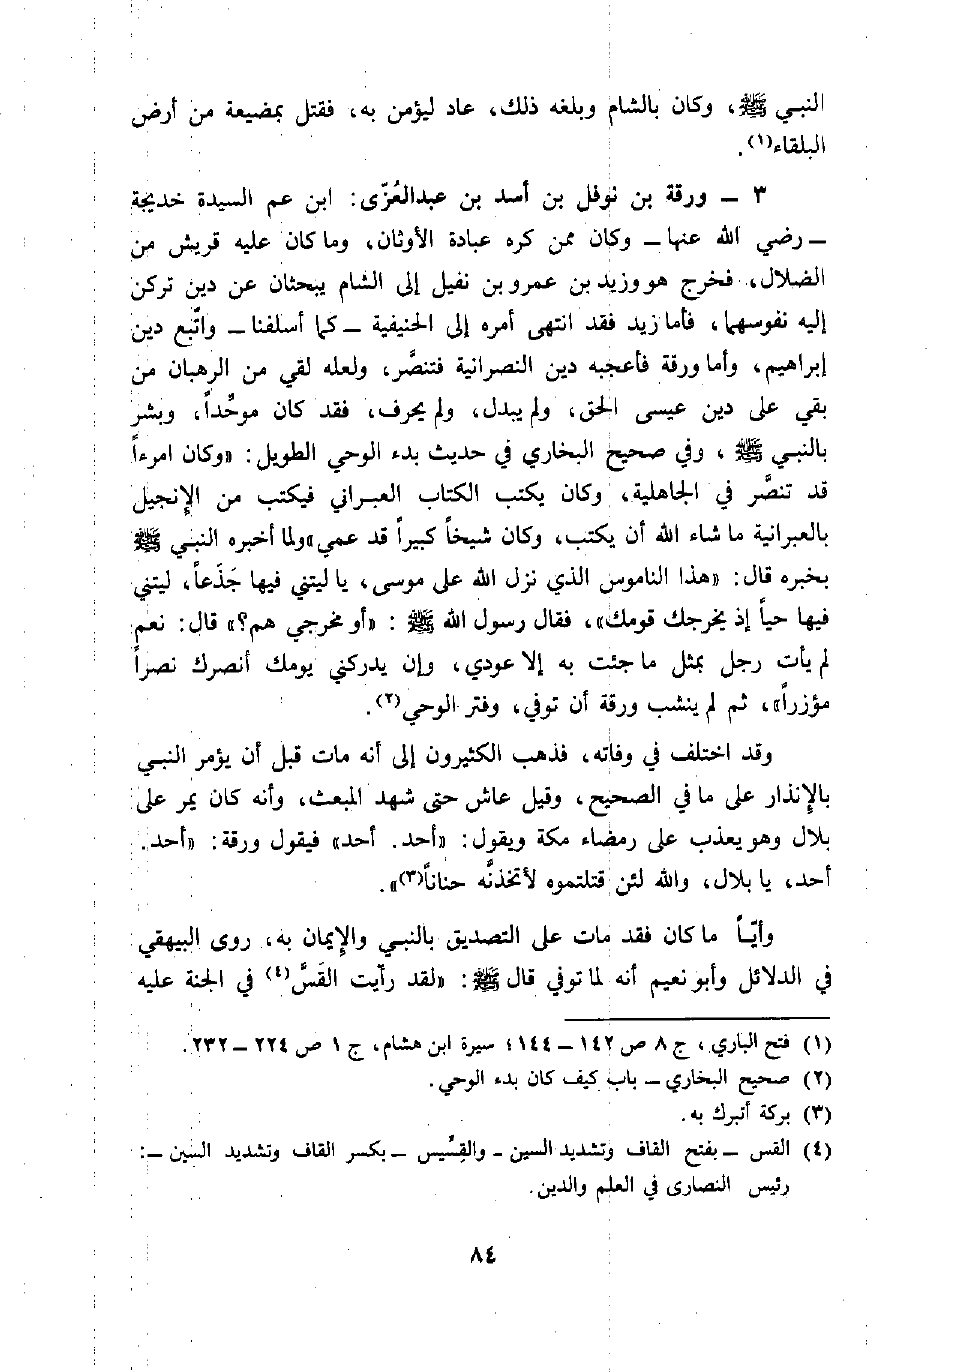 النبي ﷺ، وكان بالشام وبلغه ذلك، عاد ليؤمن به، فقتل بمضيعة من أرض
البلقاء(١).
٣ ــ ورقة بن نوفل بن أسد بن عبدالعُزّى: ابن عم السيدة خديجة
ــ رضي الله عنها ــ وكان ممن كره عبادة الأوثان، وما كان عليه قريش من
الضلال، فخرج هو وزيد بن عمرو بن نفيل إلى الشام يبحثان عن دين تركن
إليه نفوسهما، فأما زيد فقد انتهى أمره إلى الحنيفية ــ كما أسلفنا ــ واتّبع دين
إبراهيم، وأما ورقة فأعجبه دين النصرانية فتنصَّر، ولعله لقي من الرهبان من
بقي على دين عيسى الحق، ولم يبدل، ولم يحرف، فقد كان موحِّداً، وبشر
بالنبي ﷺ، وفي صحيح البخاري في حديث بدء الوحي الطويل: «وكان امرءاً
قد تنصَّر في الجاهلية، وكان يكتب الكتاب العبراني فيكتب من الإنجيل
بالعبرانية ما شاء الله أن يكتب، وكان شيخاً كبيراً قد عمي» ولما أخبره النبي ﷺ
بخبره قال: «هذا الناموس الذي نزل الله على موسى، يا ليتني فيها جَذَعاً، ليتني
فيها حياً إذ يخرجك قومك»، فقال رسول الله ﷺ: «أو مخرجي هم؟» قال: نعم
لم يأت رجل بمثل ما جئت به إلا عودي، وإن يدركني يومك أنصرك نصراً
مؤزراً»، ثم لم ينشب ورقة أن توفي، وفتر الوحي(٢).
وقد اختلف في وفاته، فذهب الكثيرون إلى أنه مات قبل أن يؤمر النبي
بالإنذار على ما في الصحيح، وقيل عاش حتى شهد المبعث، وأنه كان يمر على
بلال وهو يعذب على رمضاء مكة ويقول: «أحد. أحد» فيقول ورقة: «أحد.
أحد، يا بلال، والله لئن قتلتموه لأتخذنَّه حناناً(٣)».
وأيّاً ما كان فقد مات على التصديق بالنبي والإيمان به، روى البيهقي
في الدلائل وأبو نعيم أنه لما توفي قال ﷺ: «لقد رأيت القَسَّ(٤) في الجنة عليه
(١) فتح الباري، ج ٨ ص ١٤٢ ــ ١٤٤؛ سيرة ابن هشام، ج ١ ص ٢٢٤ ــ ٢٣٢.
(٢) صحيح البخاري ــ باب كيف كان بدء الوحي.
(٣) بركة أتبرك به.
(٤) القس ــ بفتح القاف وتشديد السين ــ والقِسِّيس ــ بكسر القاف وتشديد السين ــ:
رئيس النصارى في العلم والدين.
٨٤